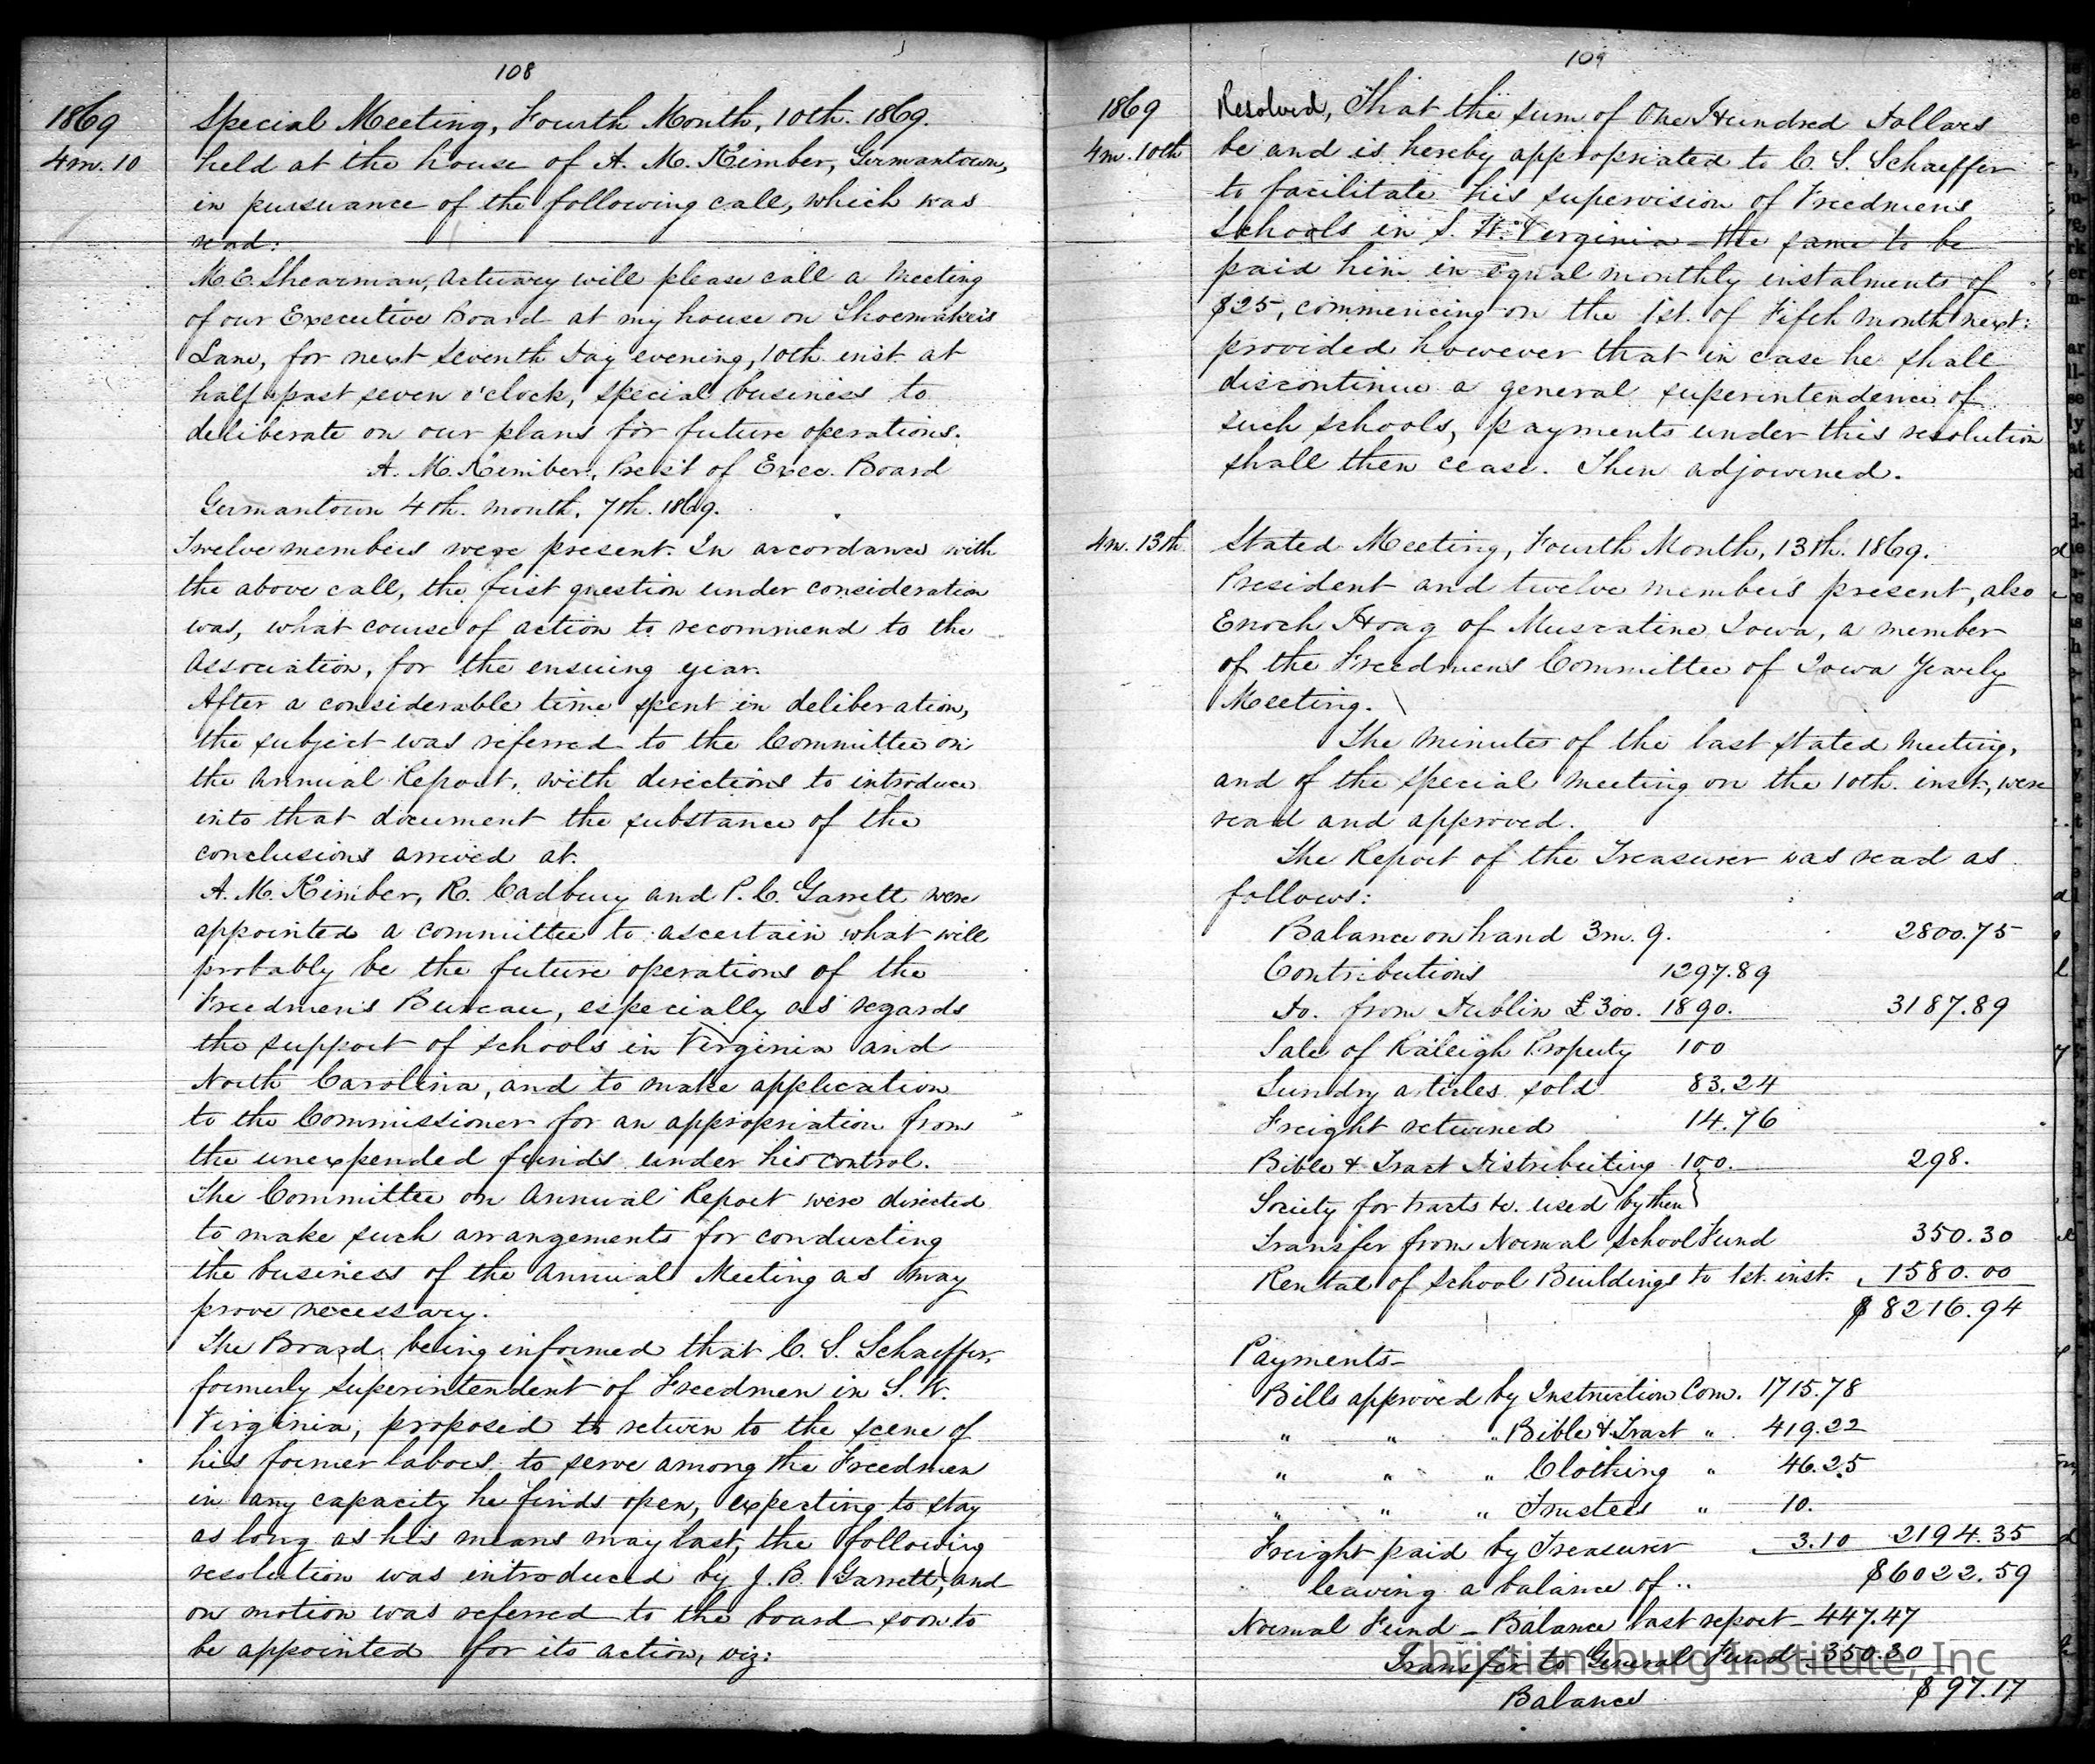 108
1869
4m. 10
Special Meeting, Fourth Month, 10th. 1869.
held at the house of A. M. Kimber, Germantown,
in pursuance of the following call, which was
read:
M. E. Shearman, Actuary will please call a Meeting
of our Executive Board at my house on Shoemaker's
Lane, for next Seventh day evening, 10th inst. at
half past seven o'clock, special business to
deliberate on our plans for future operations.
A. M. Kimber, Pres't of Exec. Board
Germantown 4th. month, 7th. 1869.
Twelve members were present. In accordance with
the above call, the first question under consideration
was, what course of action to recommend to the
Association, for the ensuing year.
After a considerable time spent in deliberation,
the subject was referred to the Committee on
the Annual Report, with directions to introduce
into that document the substance of the
conclusions arrived at.
A. M. Kimber, R. Cadbury and P. C. Garrett were
appointed a committee to ascertain what will
probably be the future operations of the
Freedmen's Bureau, especially as regards
the support of schools in Virginia and
North Carolina, and to make application
to the Commissioner for an appropriation from
the unexpended funds under his control.
The Committee on Annual Report were directed
to make such arrangements for conducting
the business of the Annual Meeting as may
prove necessary.
The Board being informed that C. S. Schaeffer,
formerly Superintendent of Freedmen in S. W.
Virginia, proposed to return to the scene of
his former labors to serve among the Freedmen
in any capacity he finds open, expecting to stay
as long as his means may last, the following
resolution was introduced by J. B. Garrett, and
on motion was referred to the board soon to
be appointed for its action, viz:
109
1869
4m. 10th
Resolved, That the sum of One Hundred Dollars
be and is hereby appropriated to C. S. Schaeffer
to facilitate his supervision of Freedmens
Schools in S. W. Virginia - the same to be
paid him in equal monthly instalments of
$25, commencing on the 1st. of Fifth month next:
provided however that in case he shall
discontinue a general superintendence of
such schools, payments under this resolution
shall then cease. Then adjourned.
4m. 13th.
Stated Meeting, Fourth Month, 13th. 1869.
President and twelve members present, also
Enoch Hoag of Muscatine Iowa, a member
of the Freedmens Committee of Iowa Yearly
Meeting.
The minutes of the last stated Meeting,
and of the special meeting on the 10th. inst., were
read and approved.
The Report of the Treasurer was read as
follows:
Balance on hand 3m. 9. 2800.75
Contributions 1297.89
Do. from Dublin £300. 1890. 3187.89
Sale of Raleigh Property 100
Sundry articles sold 83.24
Freight returned 14.76
Bible & Tract Distributing 100. 298.
Society for tracts &c. used by them
Transfer from Normal School Fund 350.30
Rental of School Buildings to 1st. inst. 1580.00
$ 8216.94
Payments -
Bills approved by Instruction Com. 1715.78
" " " Bible & Tract " 419.22
" " " Clothing " 46.25
" " " Trustees " 10.
Freight paid by Treasurer 3.10 2194.35
leaving a balance of .. $6022.59
Normal Fund - Balance last report - 447.47
Transfer to General Fund 350.30
Balance $ 97.17
Christiansburg Institute, Inc